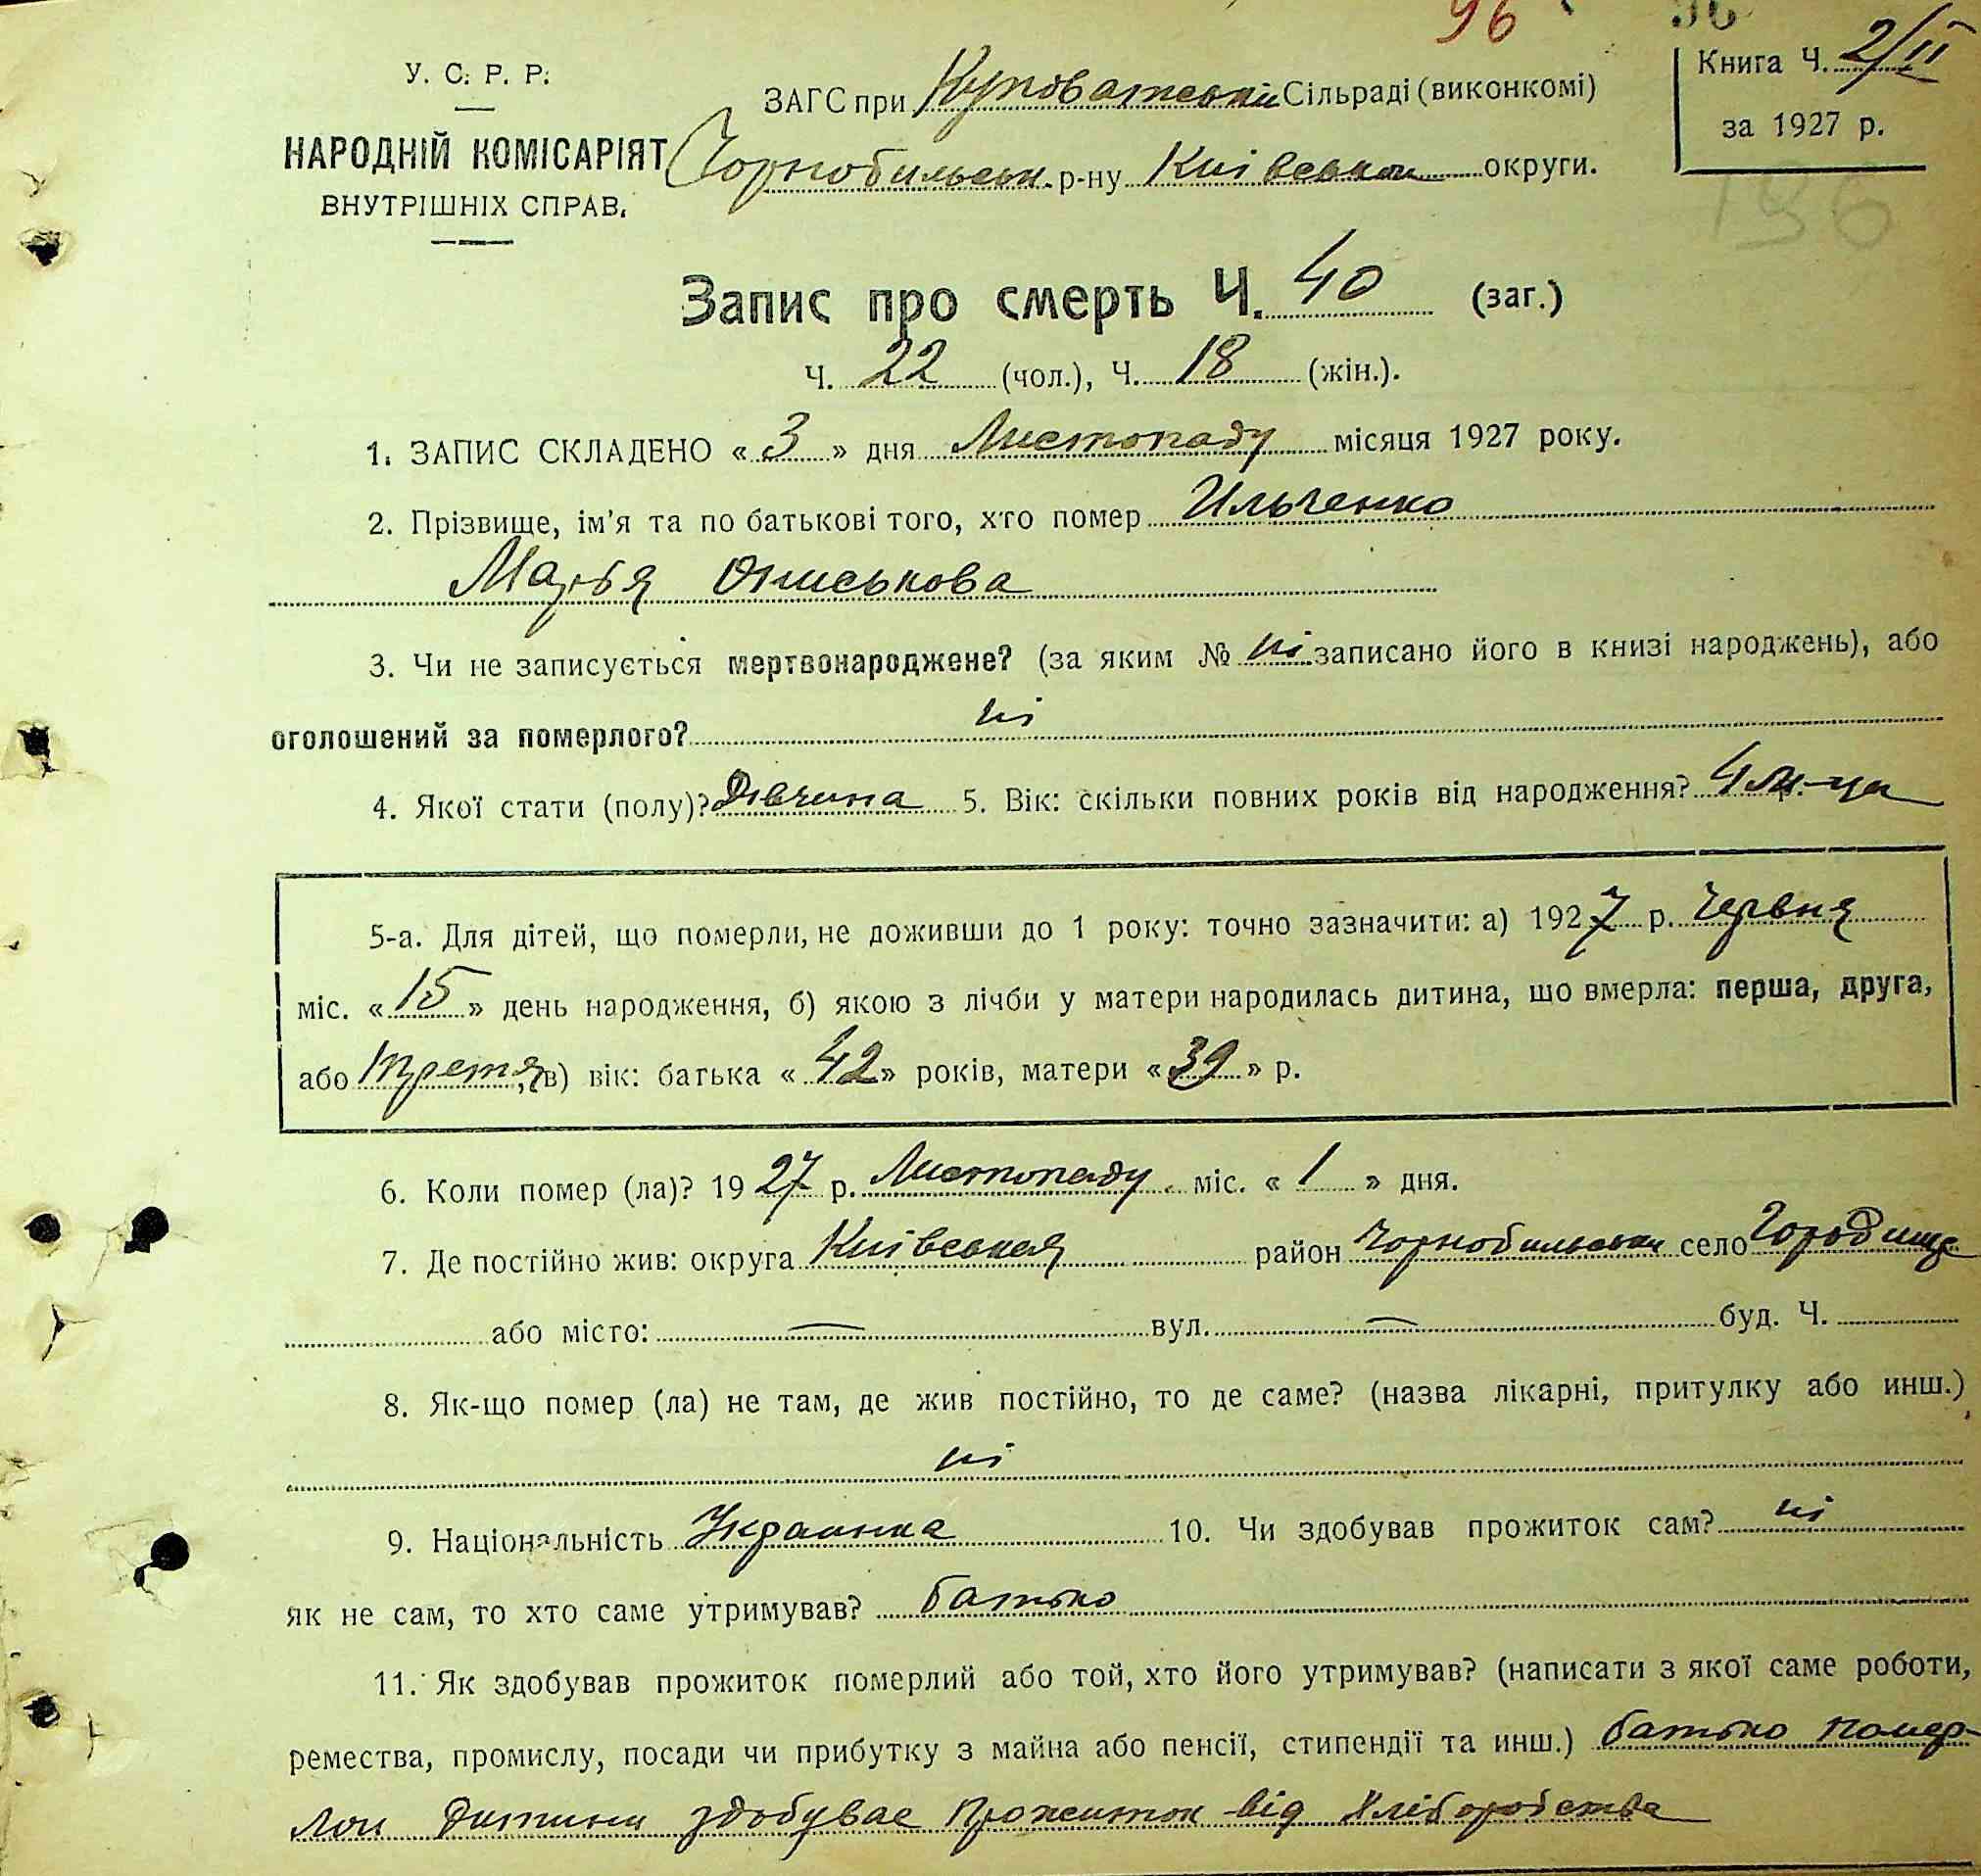 96 96
У. С. Р. Р.
НАРОДНІЙ КОМІСАРІЯТ
ВНУТРІШНІХ СПРАВ.
ЗАГС при Куповатській Сільраді (виконкомі)
Чорнобильськ. р-ну Київської округи.
Книга Ч. 2/II
за 1927 р.
196
Запис про смерть Ч. 40 (заг.)
Ч. 22 (чол.), Ч. 18 (жін.).
1. ЗАПИС СКЛАДЕНО « 3 » дня Листопаду місяця 1927 року.
2. Прізвище, ім'я та по батькові того, хто помер Ильченко
Марья Ониськова
3. Чи не записується мертвонароджене? (за яким № ні записано його в книзі народжень), або
оголошений за померлого? ні
4. Якої стати (полу)? Дівчина 5. Вік: скільки повних років від народження? 4 м-ця
5-а. Для дітей, що померли, не доживши до 1 року: точно зазначити: а) 1927 р. Червня
міс. « 15 » день народження, б) якою з лічби у матери народилась дитина, що вмерла: перша, друга,
або третя, в) вік: батька « 42 » років, матери « 39 » р.
6. Коли помер (ла)? 19 27 р. Листопаду міс. « 1 » дня.
7. Де постійно жив: округа Київськая район Чорнобильськи село Городище
або місто: — вул. — буд. Ч.
8. Як-що помер (ла) не там, де жив постійно, то де саме? (назва лікарні, притулку або инш.)
ні
9. Національність Украинка 10. Чи здобував прожиток сам? ні
як не сам, то хто саме утримував? батько
11. Як здобував прожиток померлий або той, хто його утримував? (написати з якої саме роботи,
ремества, промислу, посади чи прибутку з майна або пенсії, стипендії та инш.) батько помер-
лои Дитини здобувае Прожиток від Хліборобства